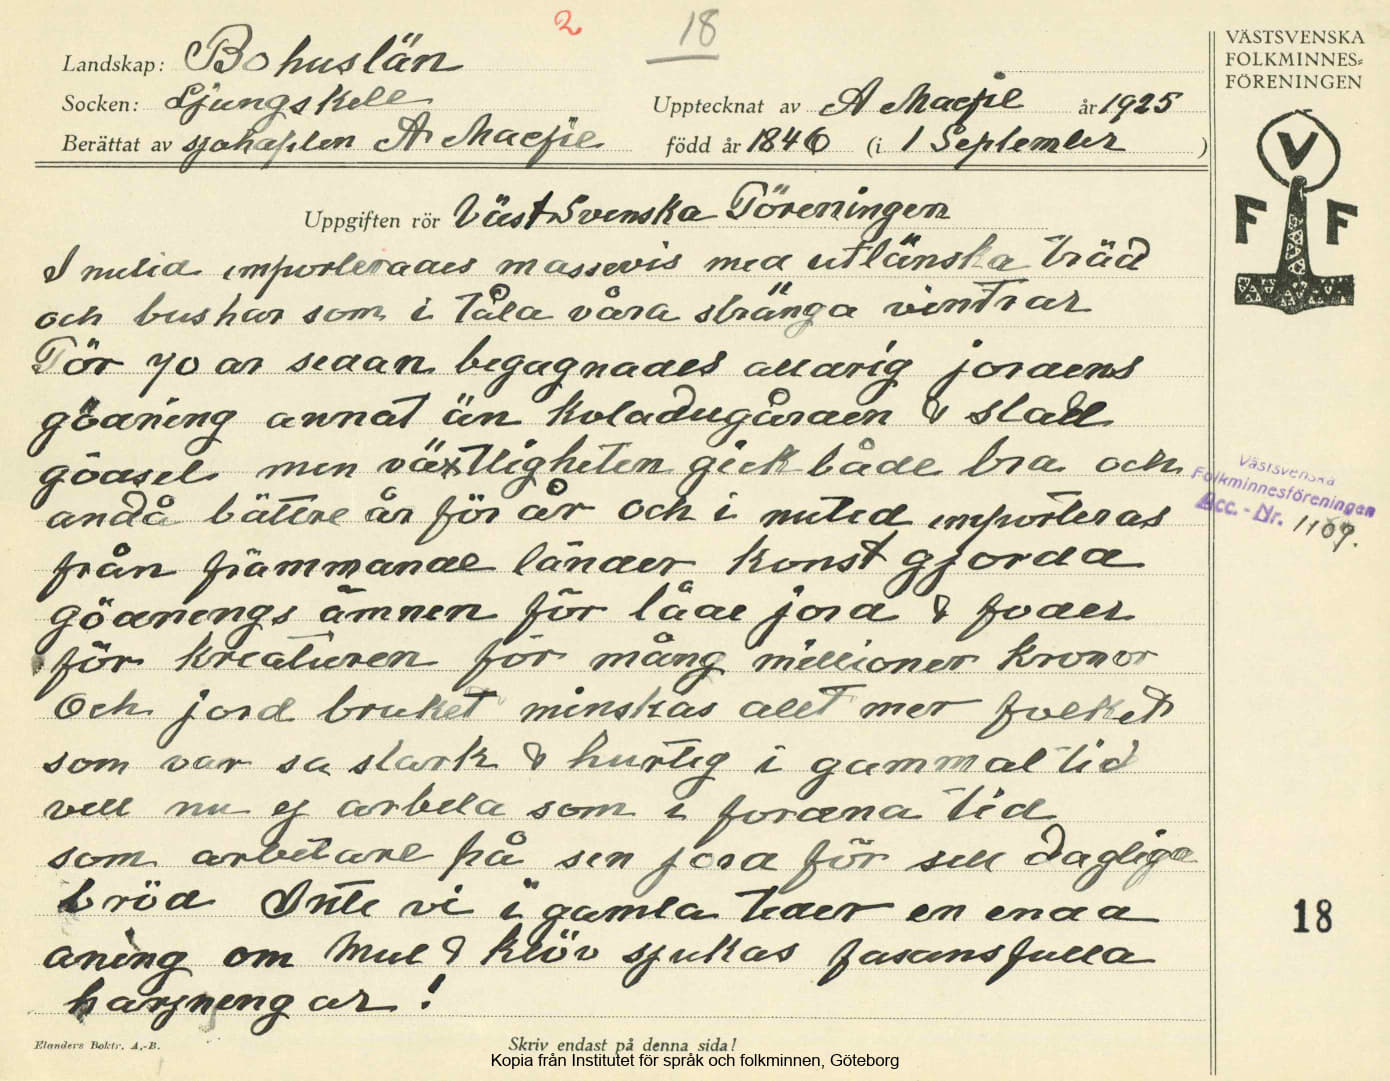 2 18
VÄSTSVENSKA
FOLKMINNES=
FÖRENINGEN
Landskap: Bohuslän
Socken: Ljungskele
Upptecknat av A Macfie år 1925
Berättat av A Macfie född år 1846 (i 1 September )
V
F F
Uppgiften rör Väst Svenska Föreningen
I nutid importerades massevis med utlänska träd
och buskar som i tåla våra stränga vintrar
För 70 ar sedan begagnades aldrig jordens
gödning annat än koladugården & stall
gödsel men växtligheten gick både bra och
andå bättre år för år Och i nutid importeras
från främmande länder konst gjorda
gödnings ämnen för både jord & foder
för kreaturen för mång millioner kronor
Och jord bruket minskas allt mer folket
som var sa stark & hurtig i gammal tid
vill nu ej arbeta som i forna tid
som arbetare på sin jord för sill dagliga
bröd Inte vi i gamla tider en enda
aning om Mul & klöv sjukas fasansfulla
harjningar!
Västsvenska
Folkminnesföreningen
Acc.-Nr. 1109.
18
Elanders Boktr. A.-B.
Skriv endast på denna sida!
Kopia från Institutet för språk och folkminnen, Göteborg